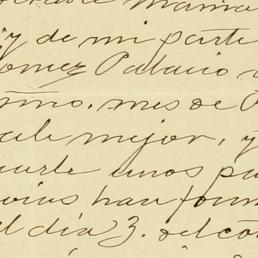 mama
y de mi parte
omez Palacio
mo. mes de
ale mejor, y
uarle unos
ovias han for
l día 3. del co